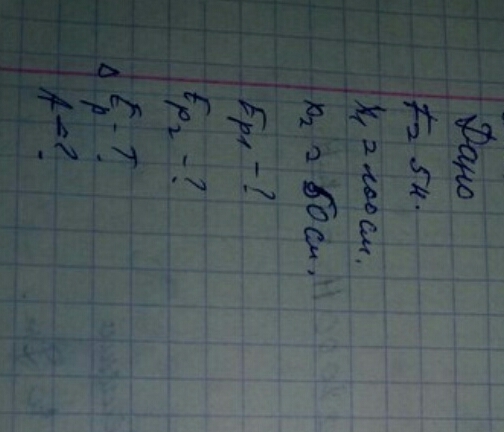 Дано
F = 5 н.
h₁ = 100 см.
h₂ = 50 см.
Ep₁ - ?
Ep₂ - ?
Δ Ep - ?
A = ?